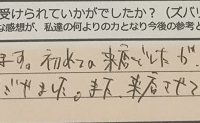 受けられていかがでしたか？（ズバリ
な感想が、私達の何よりの力となり今後の参考と
ます。初めての来店でしたが
ざいました。また、来店させて